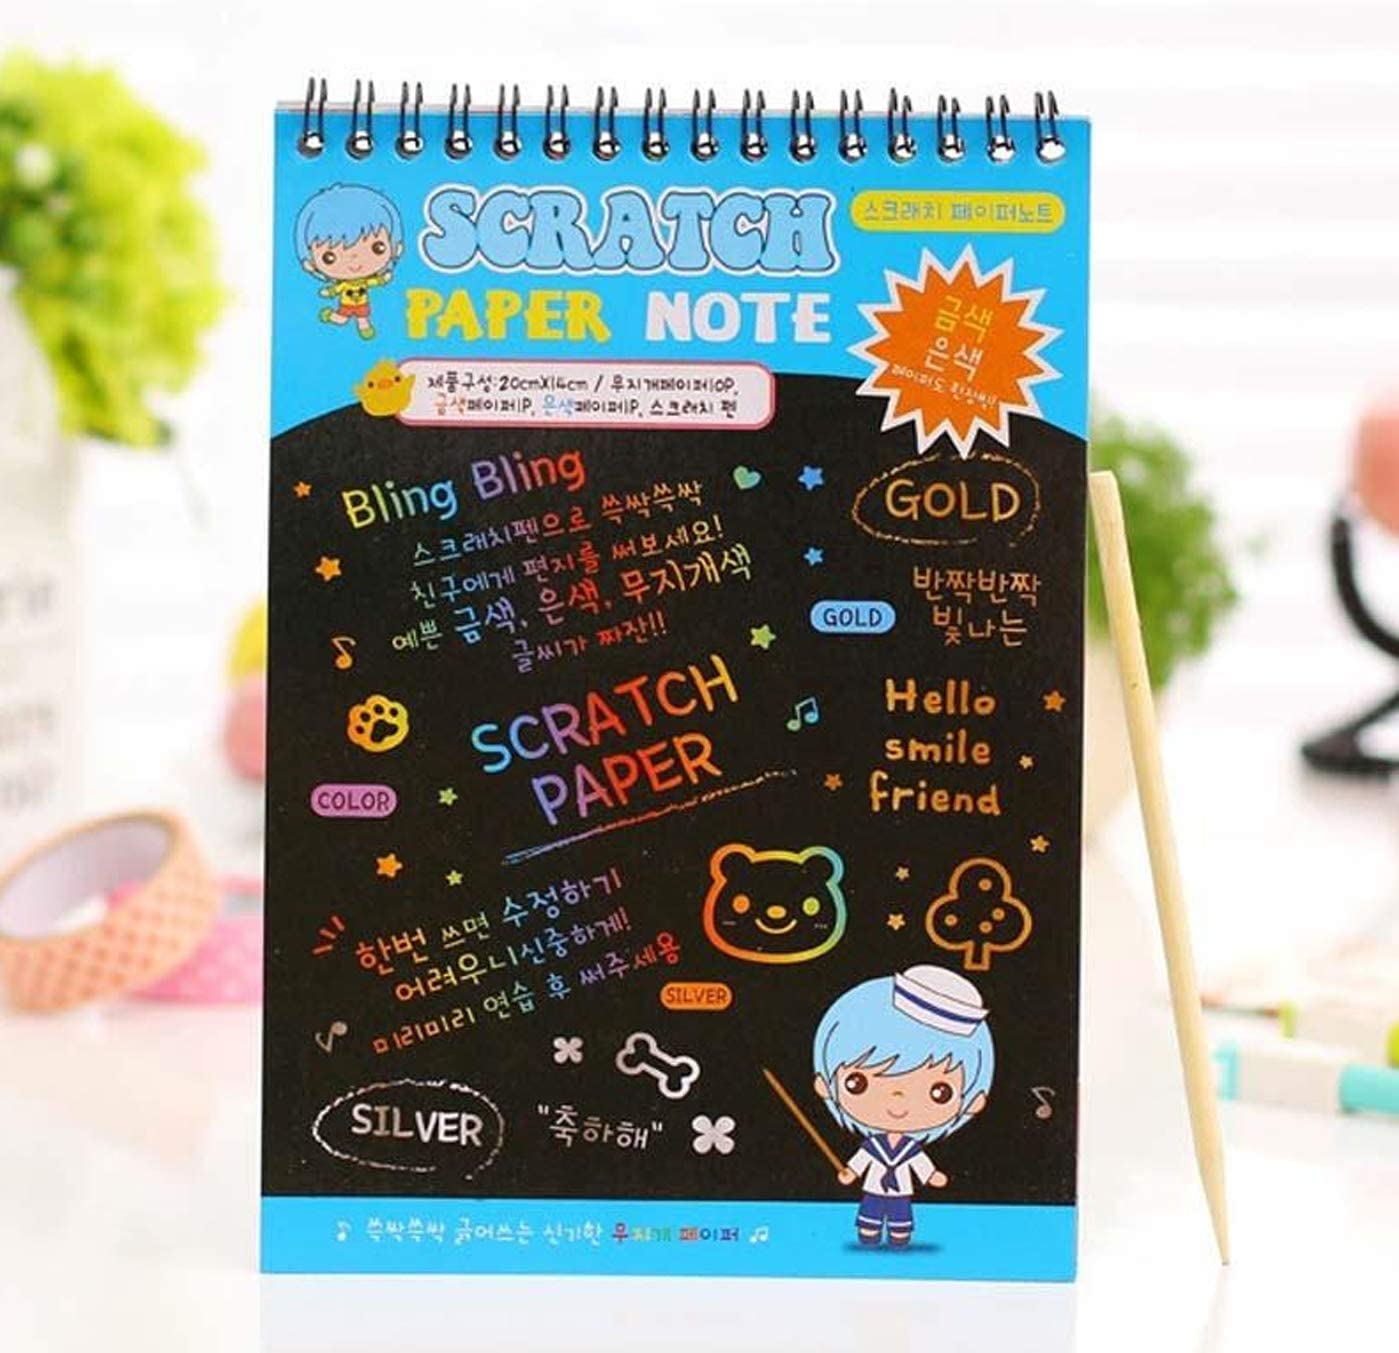 SCRATCH
스크래치 페이퍼노트
PAPER NOTE
금색
은색
페이퍼도 진정해!!
제품구성:20cmX14cm / 무지개페이퍼10P,
금색페이퍼1P, 은색페이퍼1P, 스크래치 펜
Bling Bling
스크래치펜으로 쓱싹쓱싹
친구에게 편지를 써보세요!
예쁜 금색, 은색, 무지개색
글씨가 짜잔!!
GOLD
반짝반짝
GOLD
빛나는
SCRATCH
PAPER
Hello
smile
friend
COLOR
한번 쓰면 수정하기
어려우니신중하게!
미리미리 연습 후 써주세용
SILVER
SILVER
"축하해"
쓱싹쓱싹 긁어쓰는 신기한 무지개 페이퍼